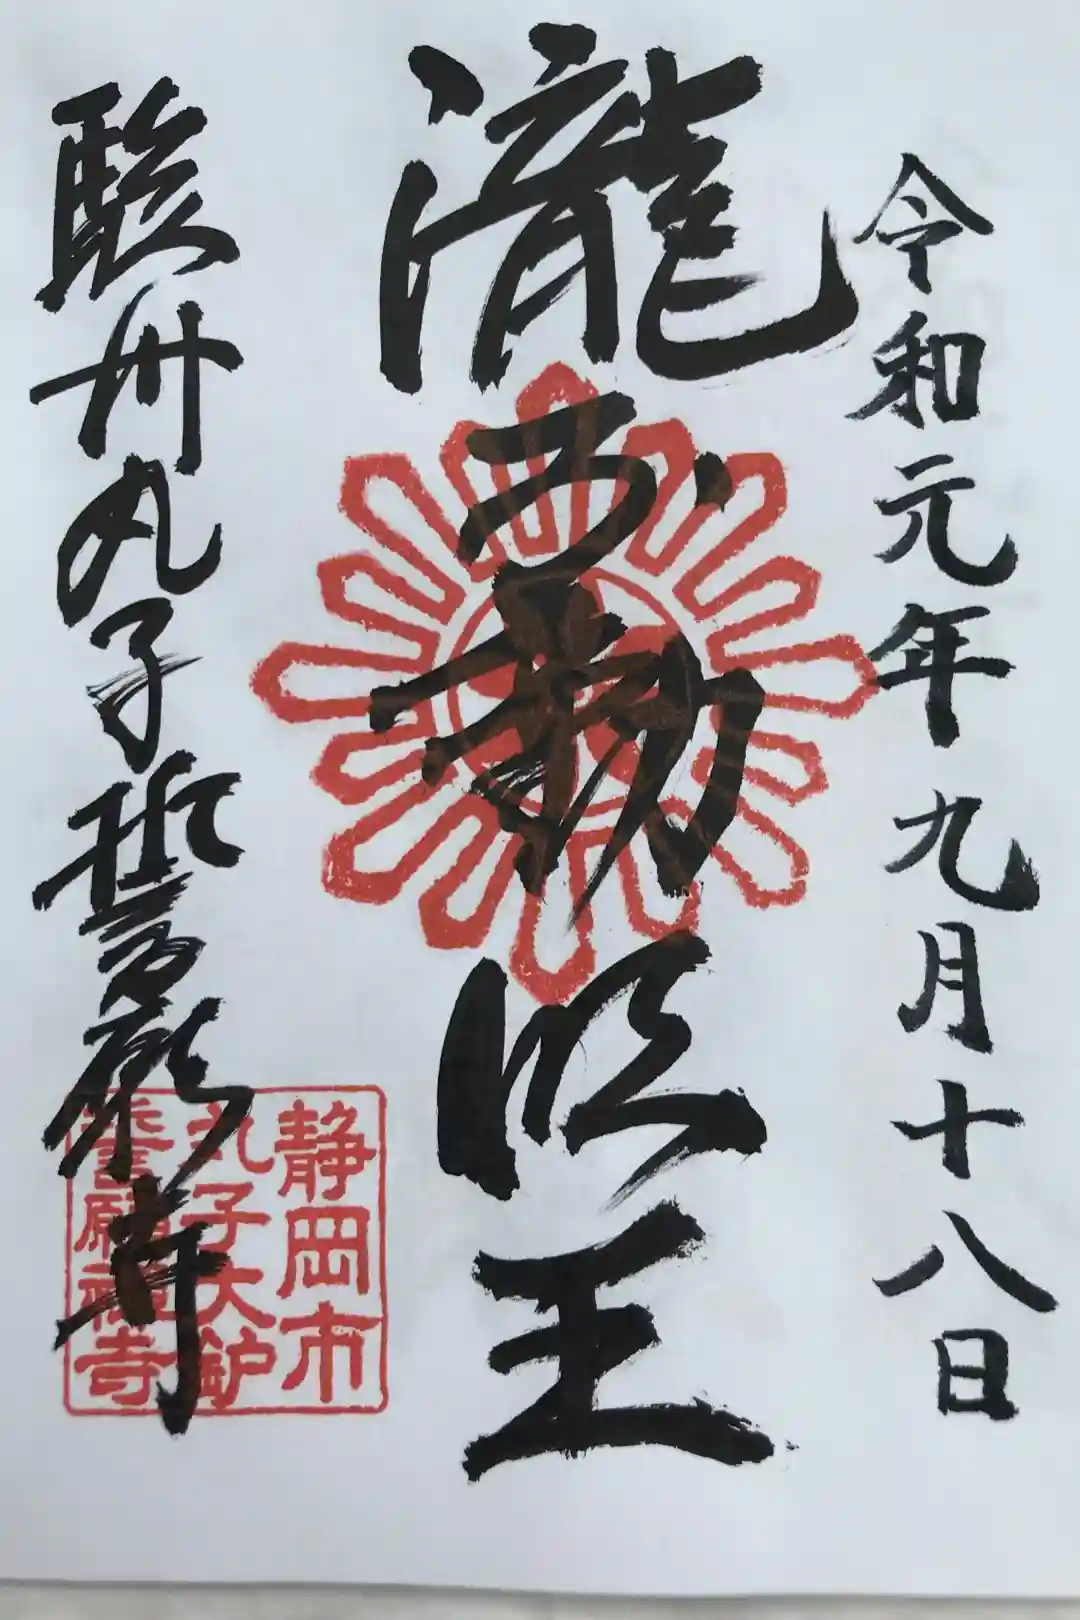 令和元年九月十八日
瀧不動明王
駿州丸子誓願寺
静岡市
丸子大鈩
誓願禅寺